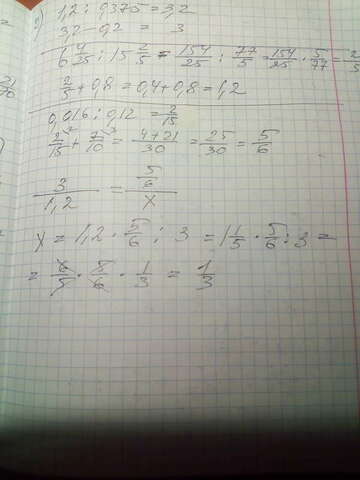 1,2 : 0,375 = 3,2
3,2 - 0,2 = 3
6 4/25 : 15 2/5 = 154/25 : 77/5 = 154/25 · 5/77 = 2/5
2/5 + 0,8 = 0,4 + 0,8 = 1,2
0,016 : 0,12 = 2/15
2/15 + 7/10 = (4+21)/30 = 25/30 = 5/6
3/1,2 = (5/6)/x
x = 1,2 · 5/6 : 3 = 1 1/5 · 5/6 : 3 =
= 6/5 · 5/6 · 1/3 = 1/3